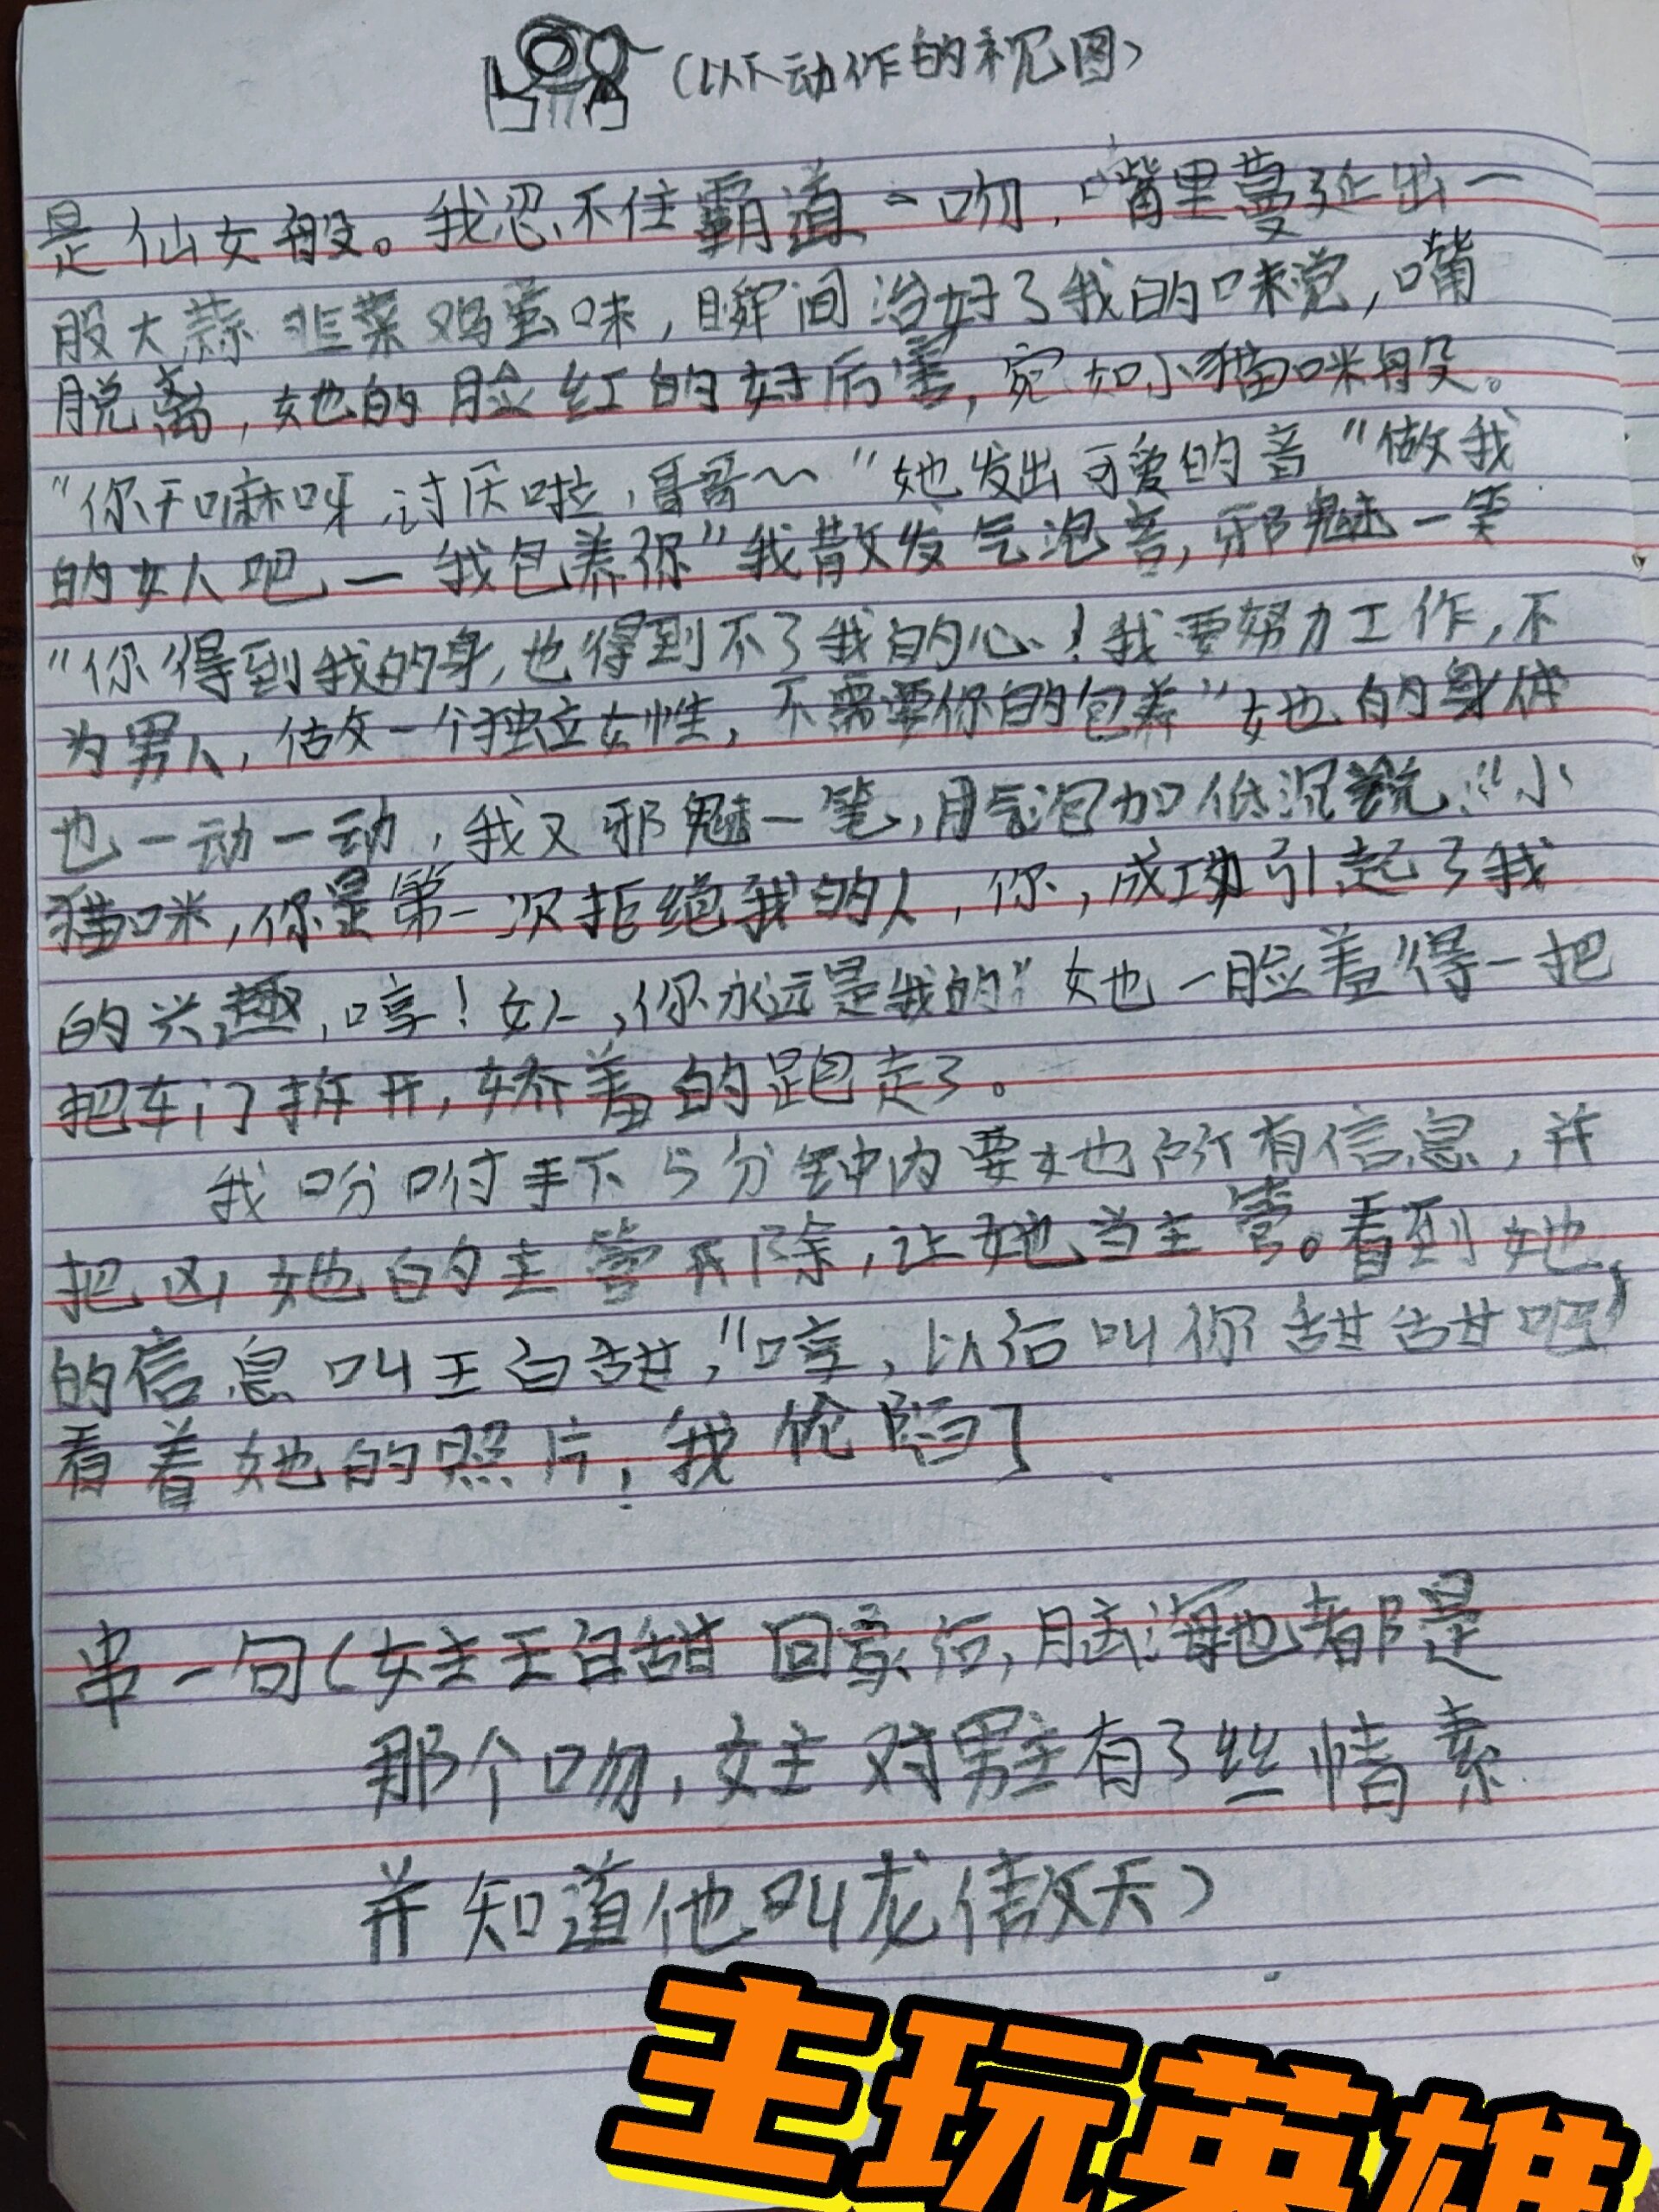 (以下动作的视图)
是仙女般。我忍不住霸道一吻,嘴里蔓延出一
股大蒜韭菜鸡蛋味,瞬间治好了我的味觉,嘴
脱离,她的脸红的好厉害,宛如小猫咪般。
"你干嘛呀,讨厌啦,哥哥~"她发出可爱的音"做我
的女人吧—我包养你"我散发气泡音,邪魅一笑
"你得到我的身,也得到不了我的心!我要努力工作,不
为男人,做一个独立女性,不需要你的包养"她的身体
也一动一动,我又邪魅一笔,用气泡加低沉说:"小
猫咪,你是第一次拒绝我的人,你,成功引起了我
的兴趣,哼!女人,你永远是我的"她一脸羞得一把
把车门拆开,娇羞的跑走了。
我吩咐手下5分钟内要她所有信息,并
把凶她的主管开除,让她当主管。看到她
的信息叫王白甜,"哼,以后叫你甜甜吧"
看着她的照片,我伦陷了
串一句(女主王白甜 回家后,脑海也都是
那个吻,女主对男主有了丝情素
并知道他叫龙傲天)
主玩英雄